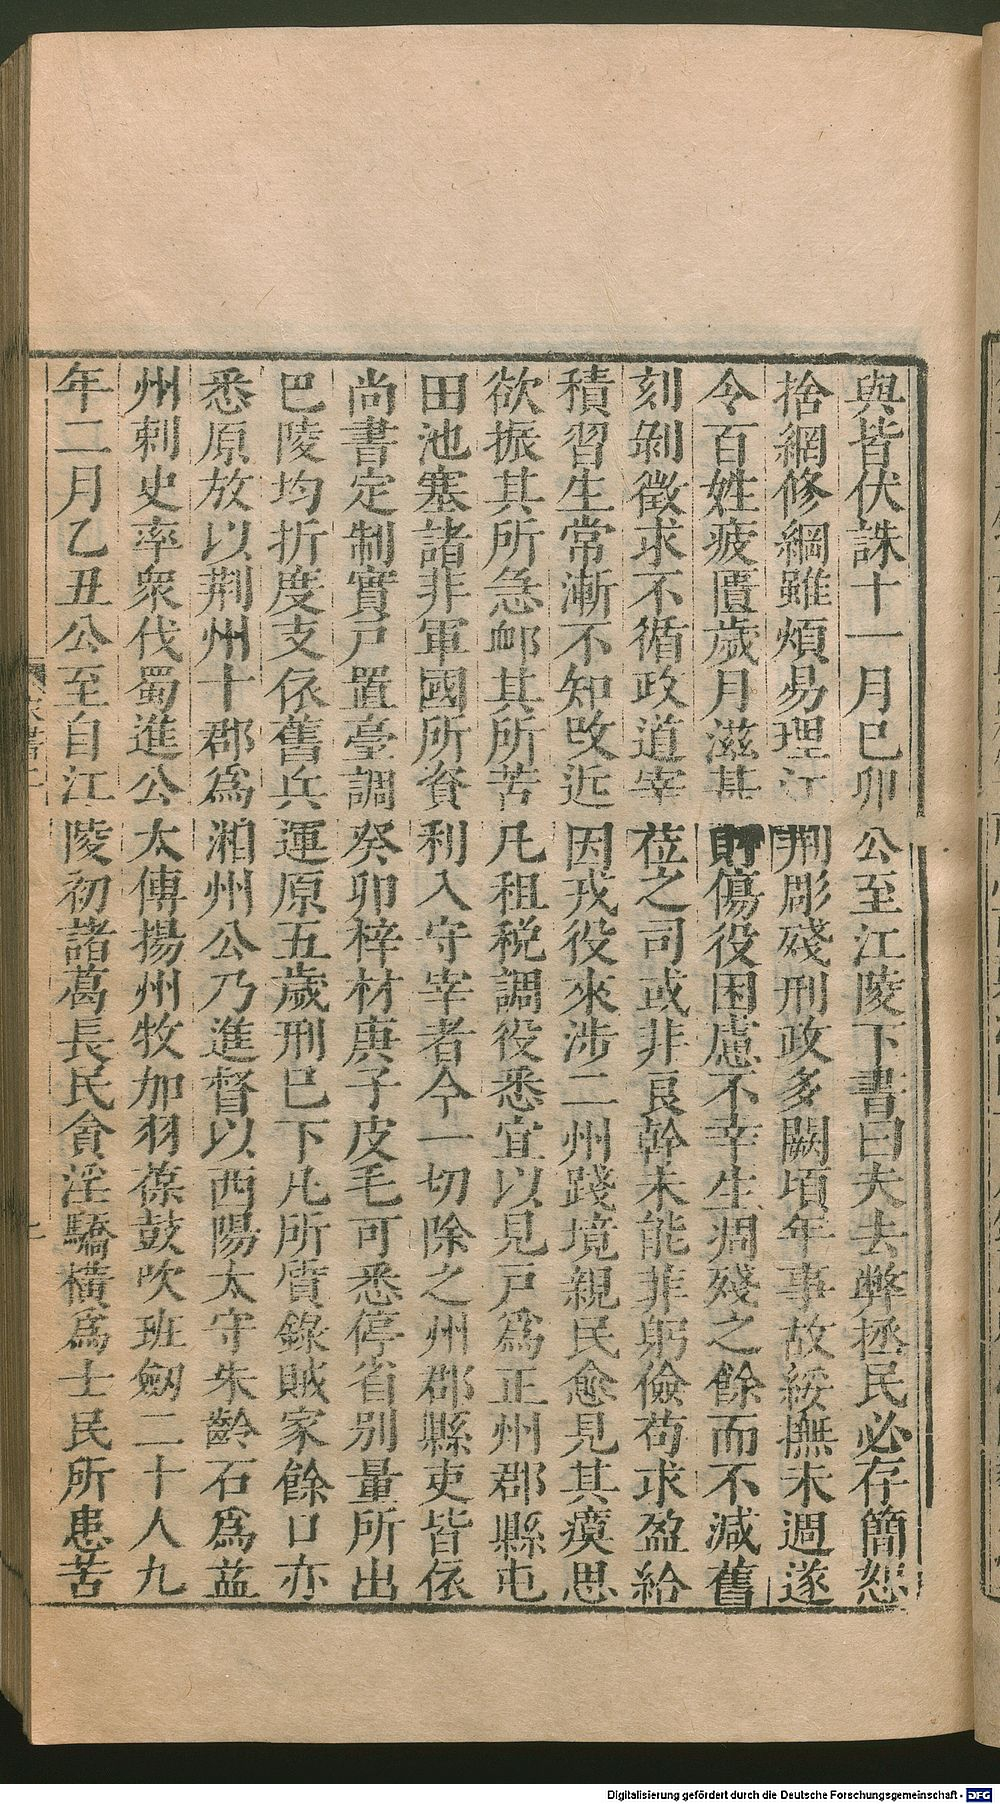 與皆伏誅十一月巳卯公至江陵下書曰夫去弊拯民必存簡恕
捨網修綱雖煩易理江荆彫殘刑政多闕頃年事故綏撫未週遂
令百姓疲匱歲月滋甚財傷役困慮不幸生凋殘之餘而不減舊
刻剝徵求不循政道宰莅之司或非良幹未能菲躬儉苟求盈給
積習生常漸不知改近因戎役來涉二州踐境親民愈見其瘼思
欲振其所急卹其所苦凡租税調役悉宜以見戸爲正州郡縣屯
田池塞諸非軍國所資利入守宰者今一切除之州郡縣吏皆依
尚書定制實戸置臺調癸卯梓材庚子皮毛可悉停省别量所出
巴陵均折度支依舊兵運原五歲刑已下凡所質錄賊家餘口亦
悉原放以荆州十郡爲湘州公乃進督以西陽太守朱齡石爲益
州刺史率衆伐蜀進公太傅揚州牧加羽葆鼓吹班劒二十人九
年二月乙丑公至自江陵初諸葛長民貪淫驕橫爲士民所患苦
Digitalisierung gefördert durch die Deutsche Forschungsgemeinschaft - DFG